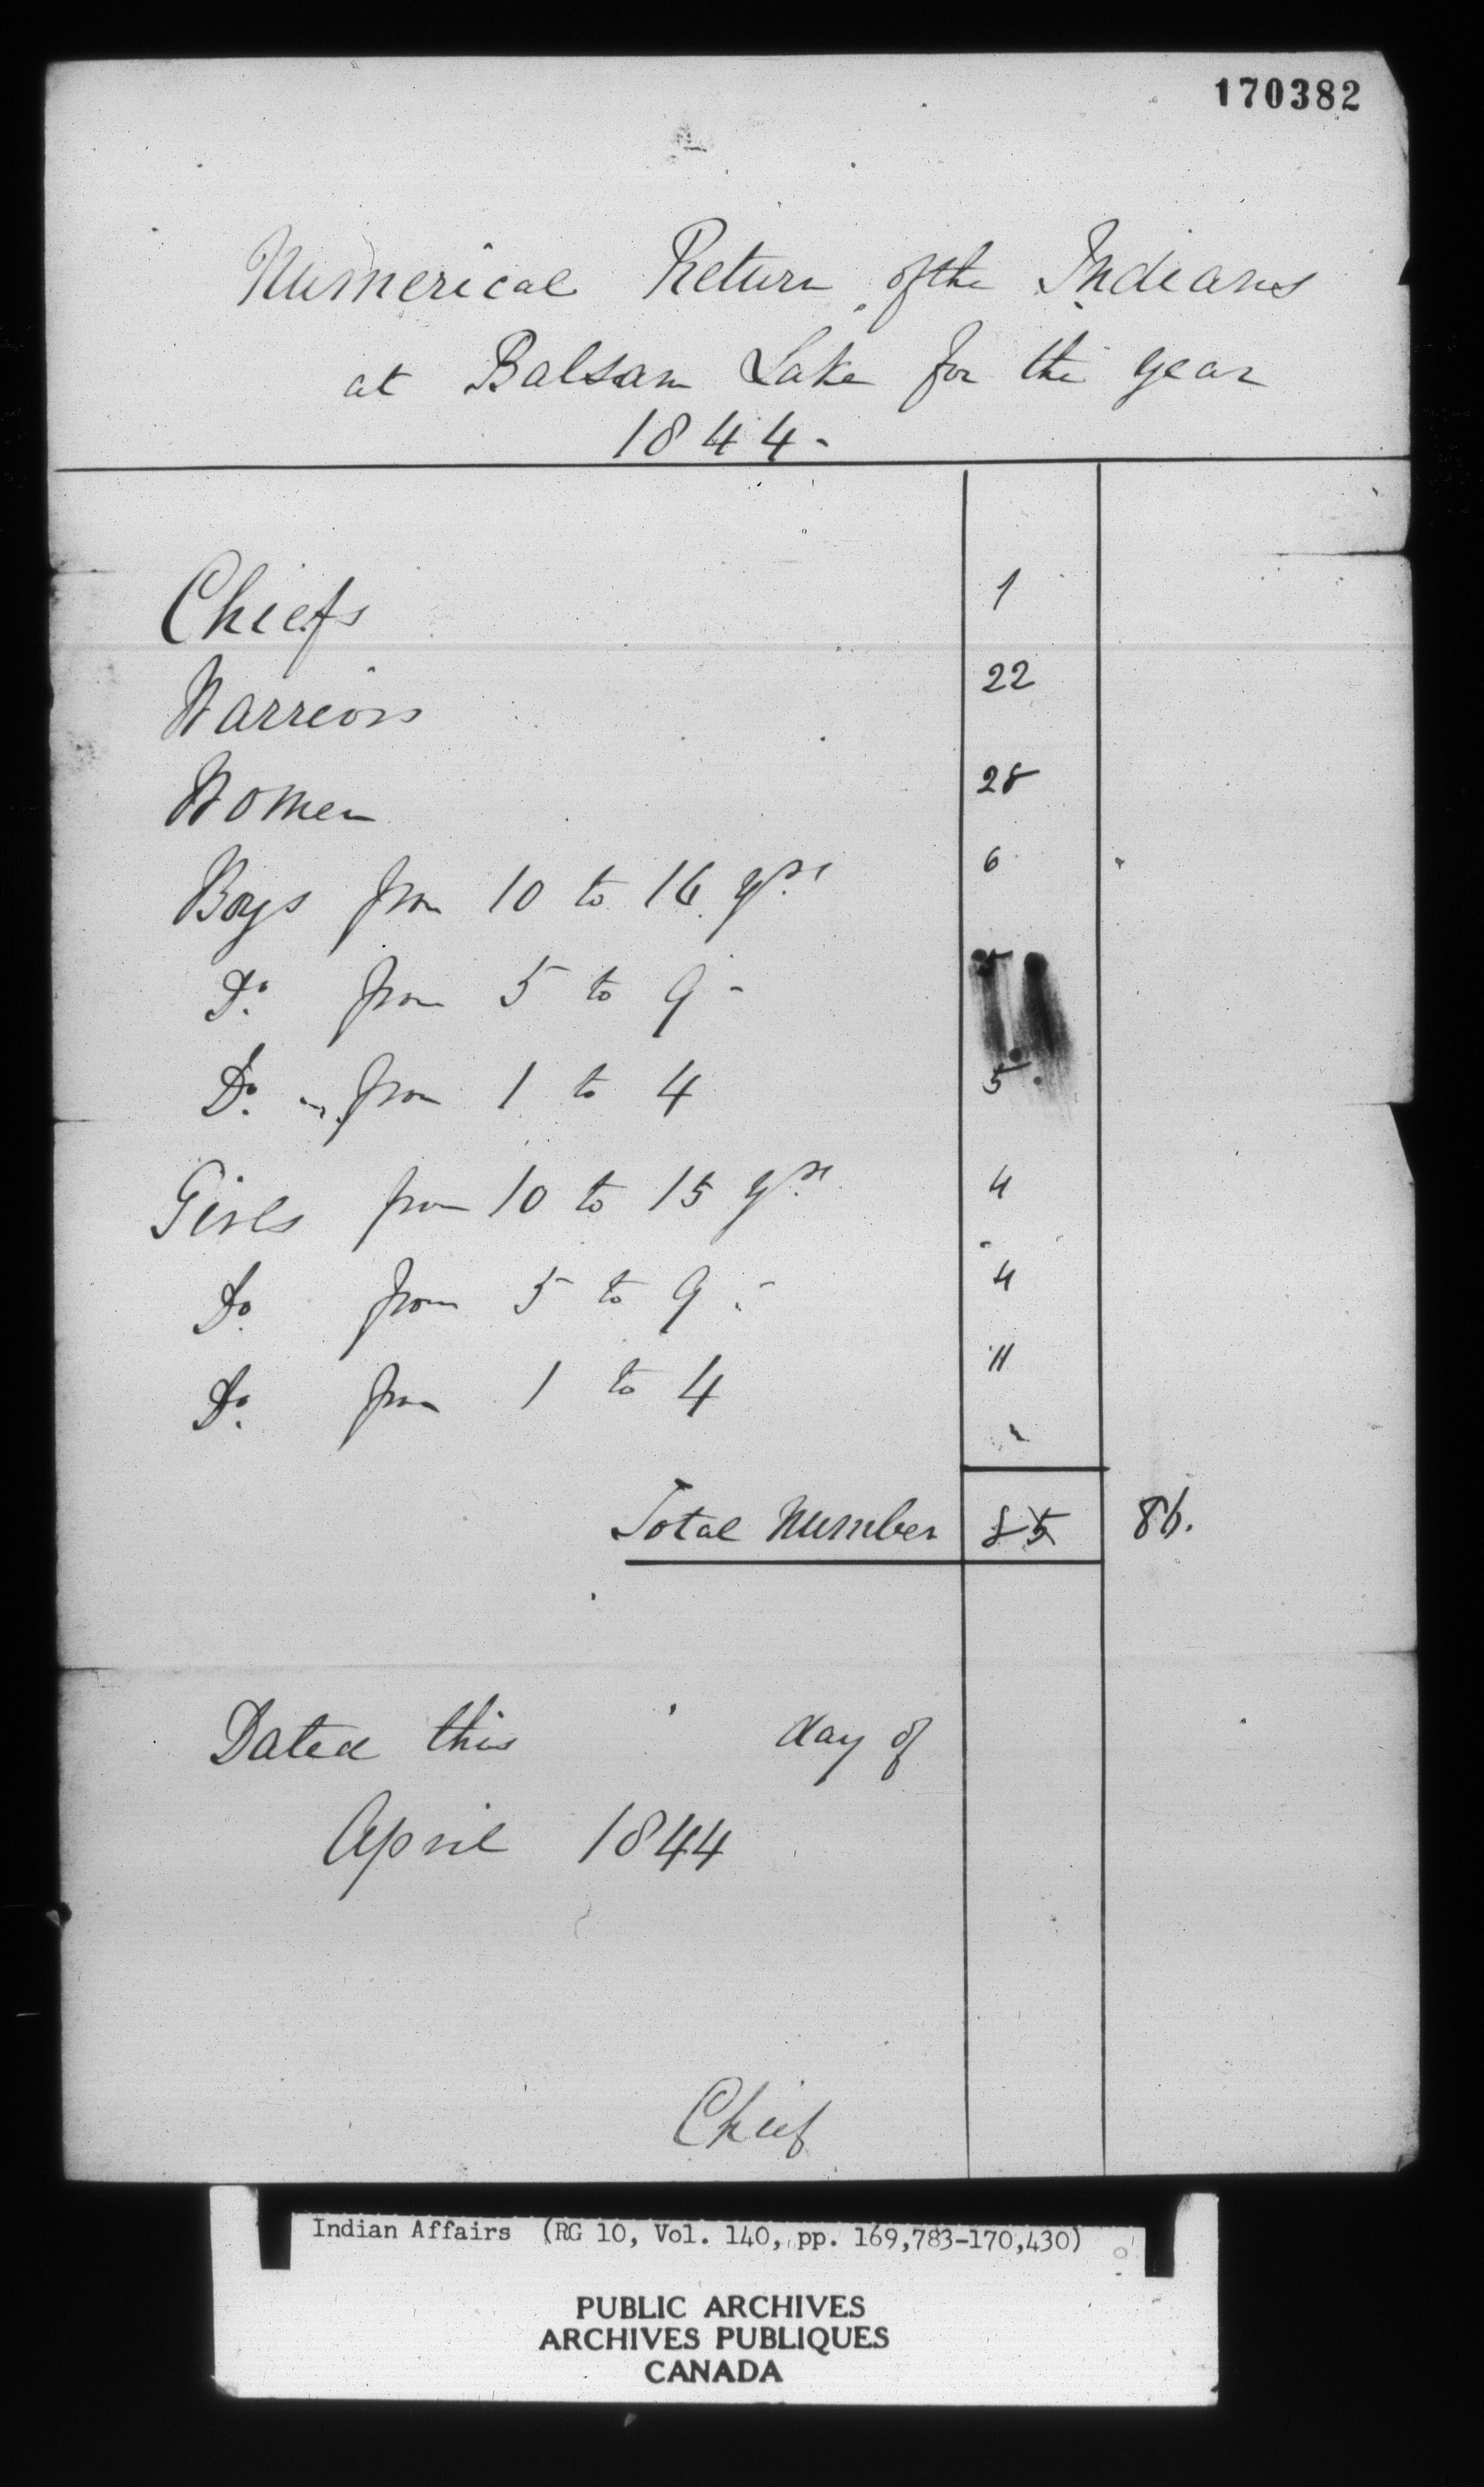 170382
Numerical Return of the Indians
at Balsam Lake for the year
1844-
Chiefs 1
Warriors 22
Women 28
Boys from 10 to 16 yrs 6
Do. from 5 to 9 - 5
Do. from 1 to 4 5
Girls from 10 to 15 yrs 4
Do. from 5 to 9 - 4
Do. from 1 to 4 11
Total Number 85 86.
Dated this day of
April 1844
Chief
Indian Affairs (RG 10, Vol. 140, pp. 169,783-170,430)
PUBLIC ARCHIVES
ARCHIVES PUBLIQUES
CANADA